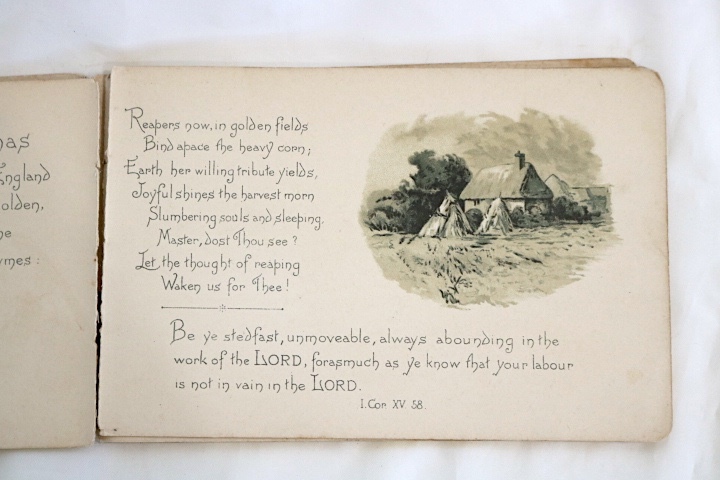 as
England
olden,
e
ymes :
Reapers now, in golden fields
Bind apace the heavy corn;
Earth her willing tribute yields,
Joyful shines the harvest morn
Slumbering souls and sleeping,
Master, dost Thou see?
Let the thought of reaping
Waken us for Thee!
Be ye stedfast, unmoveable, always abounding in the
work of the LORD, forasmuch as ye know that your labour
is not in vain in the LORD.
I. Cor XV. 58.